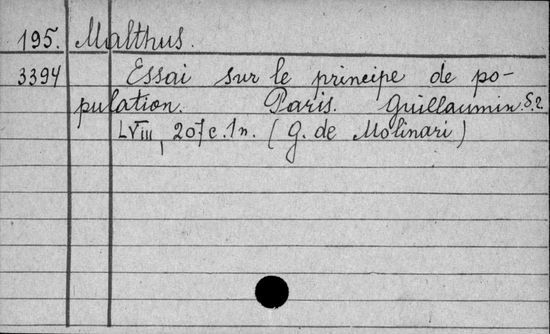 195. Malthus.
3394 Essai sur le principe de po-
pulation. Paris. Guillaumin. S.a.
LVIII, 207 c. 1 n. (G. de Molinari)